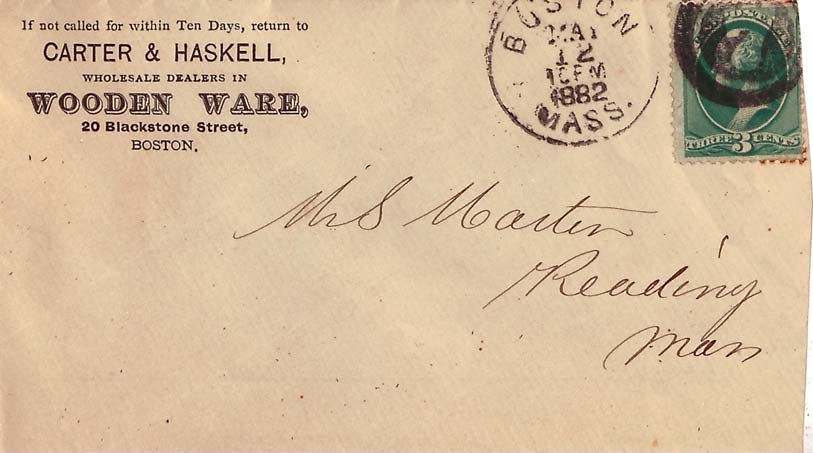 If not called for within Ten Days, return to
CARTER & HASKELL,
WHOLESALE DEALERS IN
WOODEN WARE,
20 Blackstone Street,
BOSTON.
BOSTON
MAY
12
10 PM
1882
MASS.
THREE 3 CENTS
Mr S Marten
Reading
Mass